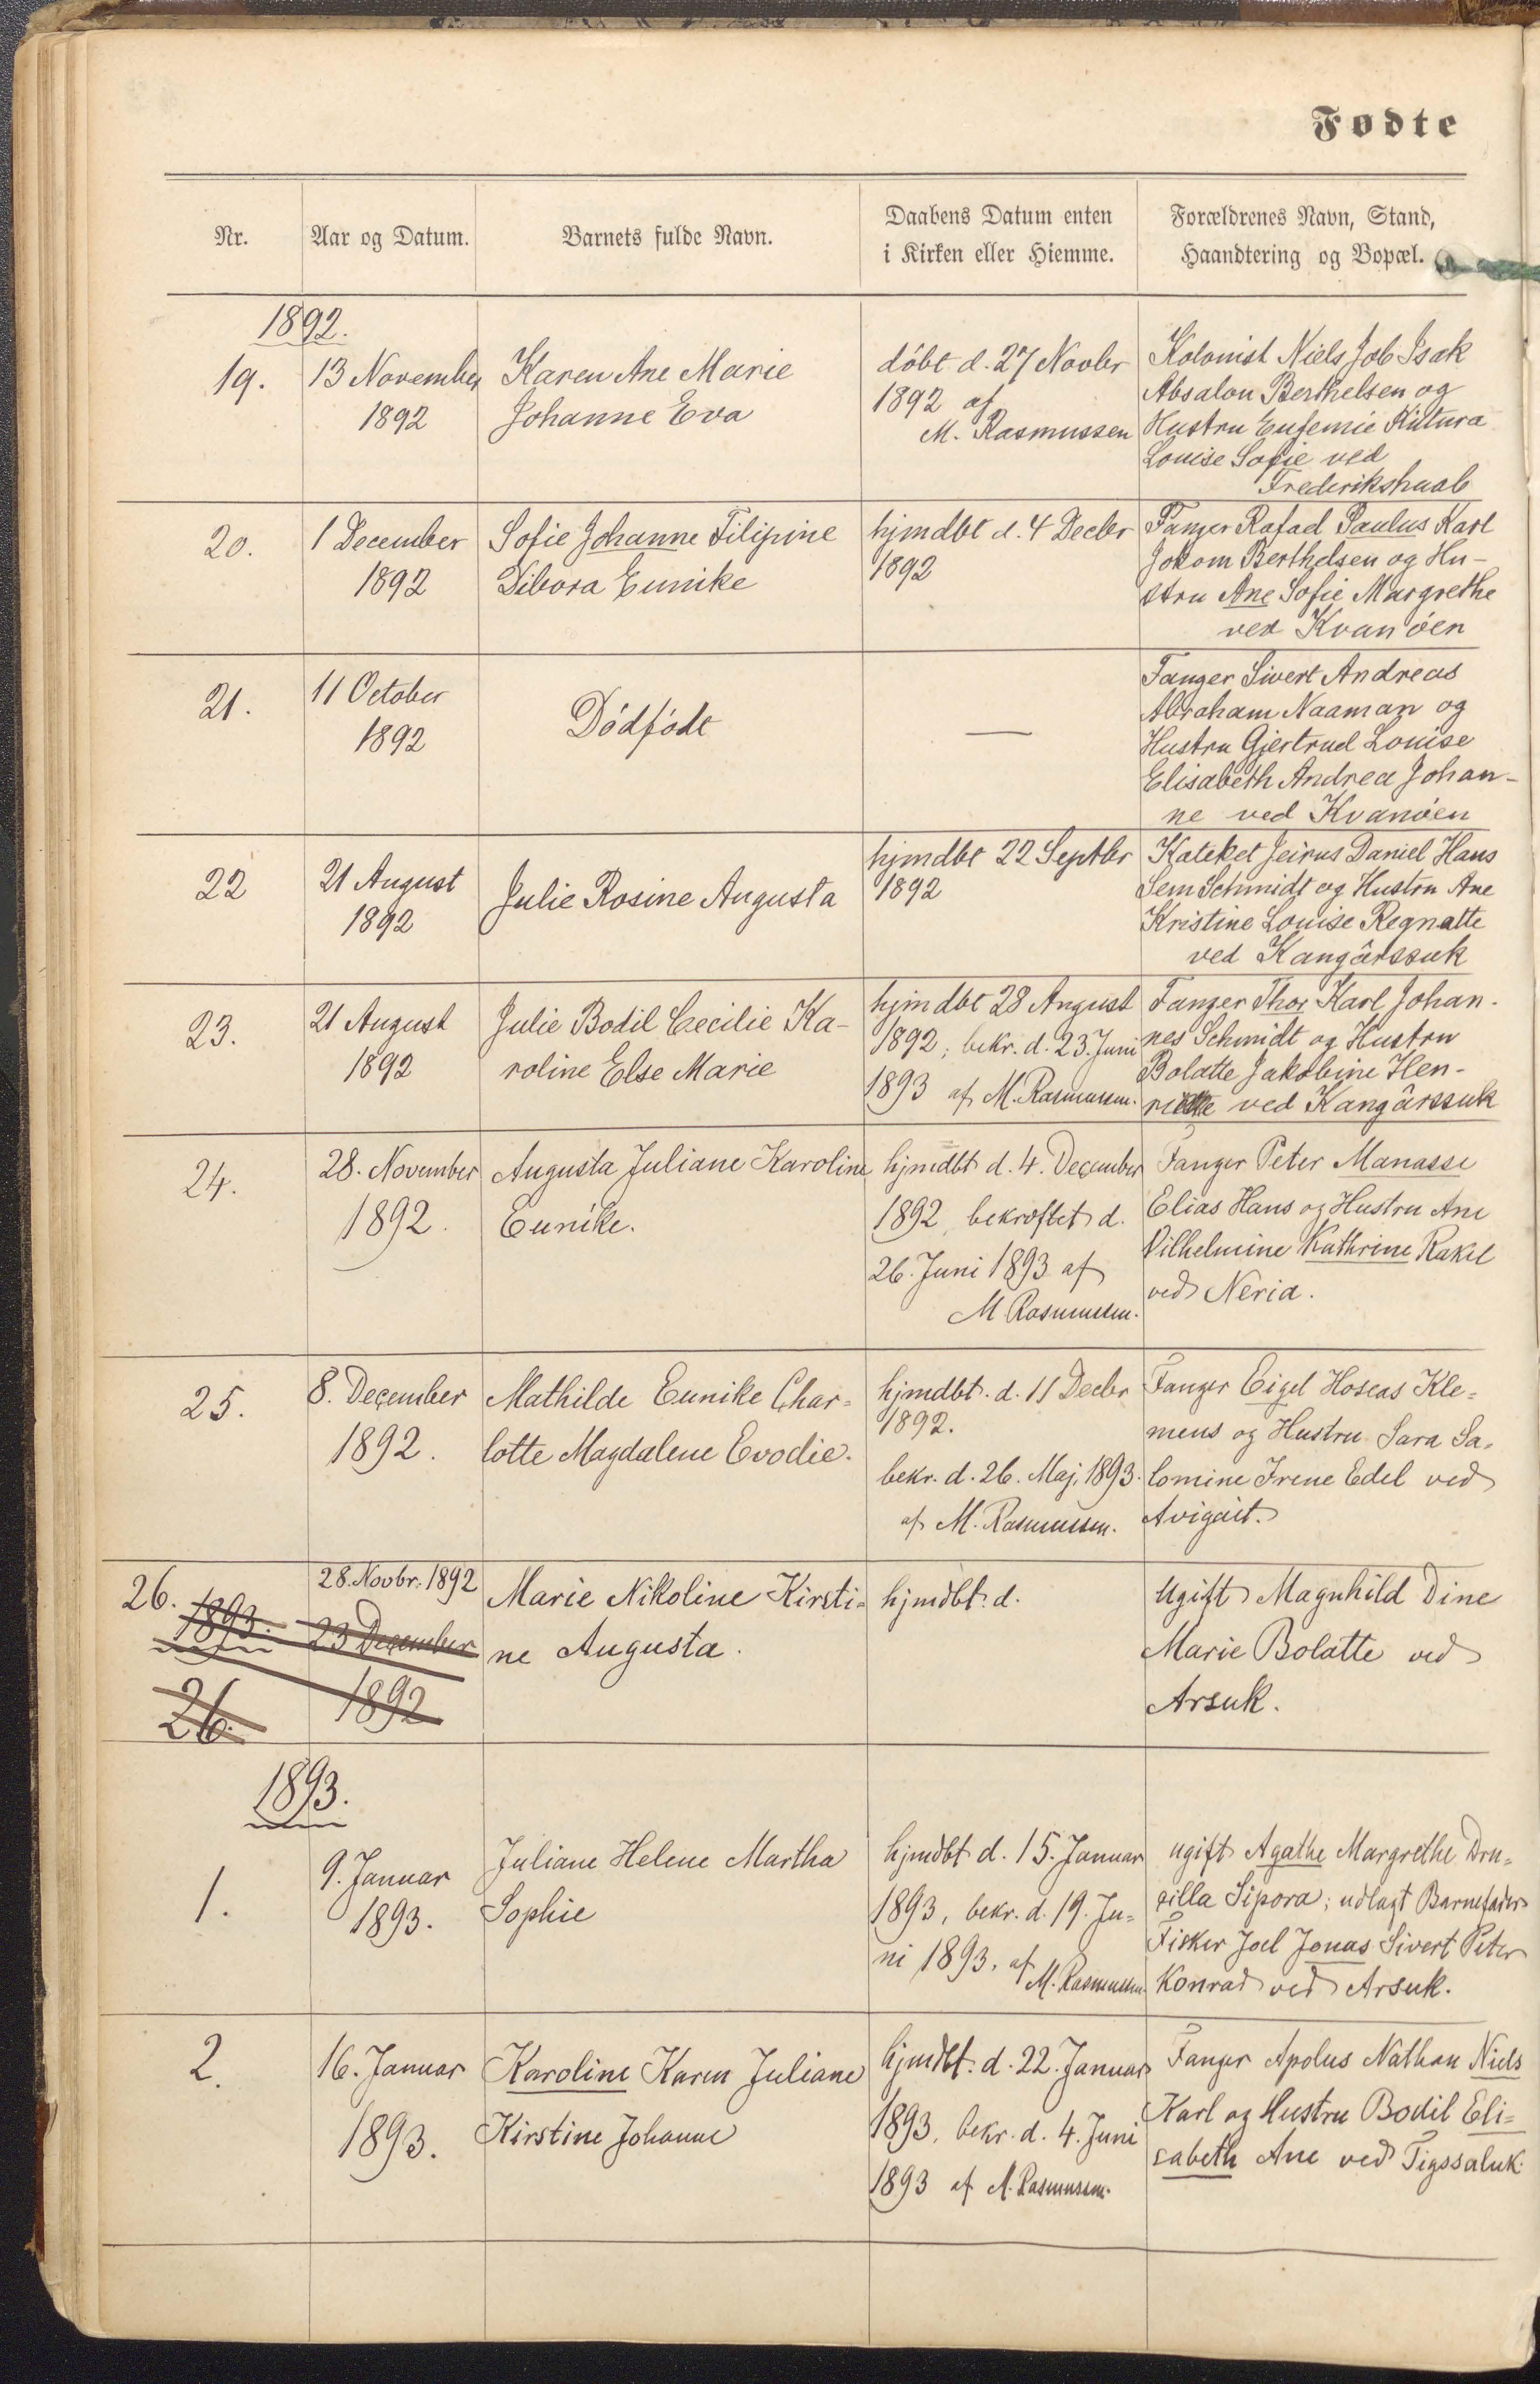 Fødte
Nr.
Aar og Datum.
Barnets fulde Navn.
Daabens Datum enten
i Kirken eller Hiemme.
Forældrenes Navn, Stand,
Haandtering og Bopæl.
1892.
19.
13 November
1892
Karen Ane Marie
Johanne Eva
döbt d. 27 Novbr
1892 af
M. Rasmussen
Kolonist Niels Job Isak
Absalon Berthelsen og
Hustru Eufemie Kitura
Louise Sofie ved
Frederikshaab
20.
1 December
1892
Sofie Johanne Filipine
Dibora Eunike
hjmdbt d. 4 Decbr
1892
Fanger Rafael Paulus Karl
Jokom Berthelsen og Hu-
stru Ane Sofie Margrethe
ved Kvanöen
21.
11 October
1892
Dödfödt
—
Fanger Sivert Andreas
Abraham Naaman og
Hustru Gjertrud Louise
Elisabeth Andrea Johan-
ne ved Kvanöen
22
21 August
1892
Julie Rosine Augusta
hjmdbt 22 Septbr
1892
Kateket Jeirus Daniel Hans
Sem Schmidt og Hustru Ane
Kristine Louise Regnatte
ved Kangârssuk
23.
21 August
1892
Julie Bodil Cecilie Ka-
roline Else Marie
hjmdbt 28 August
1892, bekr. d. 23. Juni
1893 af M. Rasmussen.
Fanger Thor Karl Johan-
nes Schmidt og Hustru
Bolatte Jakobine Hen-
riette ved Kangârssuk
24.
28. November
1892.
Augusta Juliane Karoline
Eunike.
hjmdbt d. 4. December
1892, bekræftet d.
26. Juni 1893 af
M. Rasmussen.
Fanger Peter Manasse
Elias Hans og Hustru Ane
Vilhelmine Kathrine Rakel
ved Neria.
25.
8. December
1892.
Mathilde Eunike Char-
lotte Magdalene Evodie.
hjmdbt. d. 11 Decbr
1892.
bekr. d. 26. Maj 1893.
af M. Rasmussen.
Fanger Eigel Hoseas Kle-
mens og Hustru Sara Sa-
lomine Irene Edel ved
Avigait.
26.
28. Novbr. 1892
1893.
23 December
26.
1892
Marie Nikoline Kirsti-
ne Augusta.
hjmdbt. d.
Ugift Magnhild Dine
Marie Bolatte ved
Arsuk.
1893.
1.
9. Januar
1893.
Juliane Helene Martha
Sophie
hjmdbt d. 15. Januar
1893, bekr. d. 19. Ju-
ni 1893. af
M. Rasmussen
ugift Agathe Margrethe Dru-
silla Sipora; udlagt Barnefader
Fisker Joel Jonas Sivert Peter
Konrad ved Arsuk.
2.
16. Januar
1893.
Karoline Karen Juliane
Kirstine Johanne
hjmdbt. d. 22. Januar
1893, bekr. d. 4. Juni
1893 af M. Rasmussen.
Fanger Apolus Nathan Niels
Karl og Hustru Bodil Eli-
sabeth Ane ved Tigssaluk.